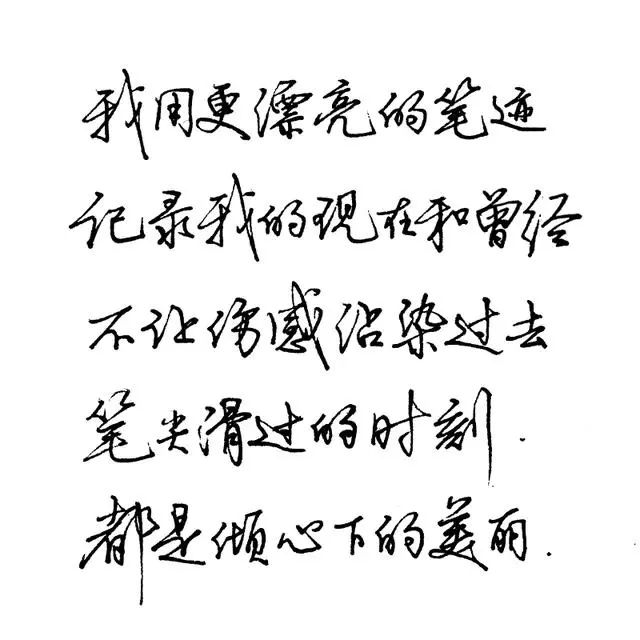 我用更漂亮的笔迹
记录我的现在和曾经
不让伤感沾染过去
笔尖滑过的时刻.
都是倾心下的美丽.